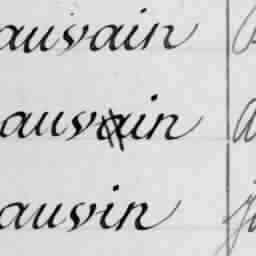 auvain
auvain
auvin